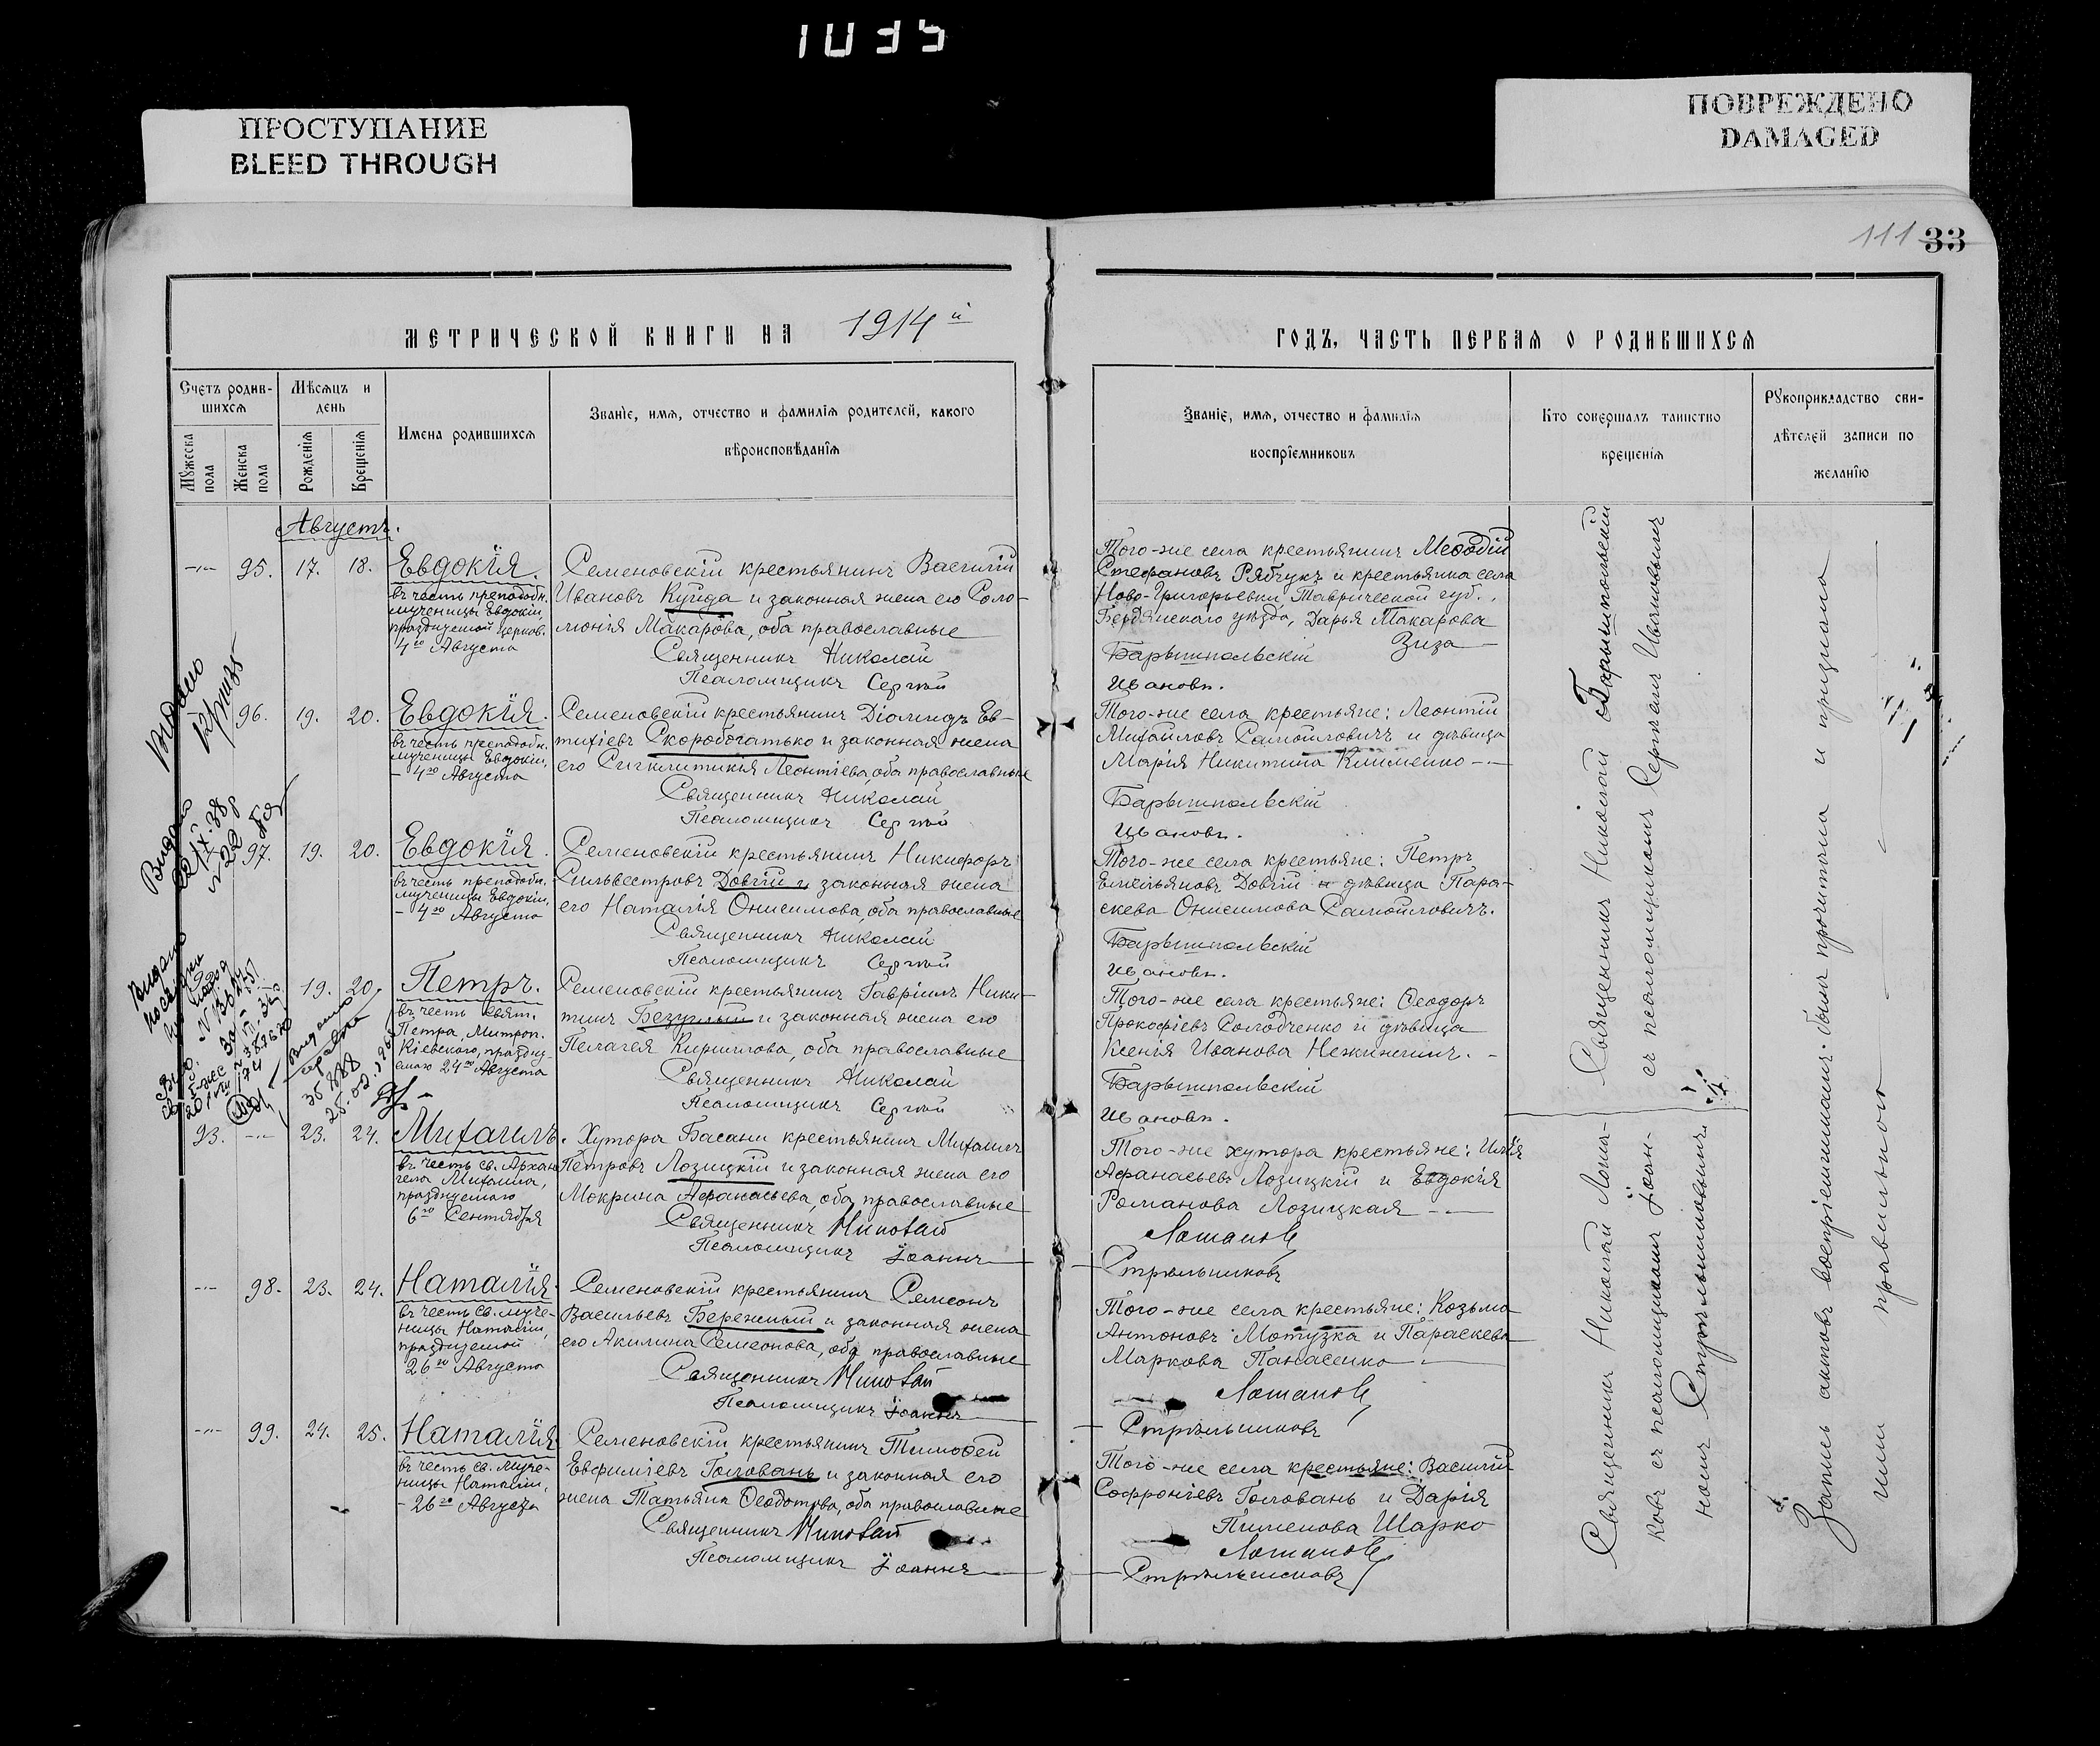 ПРОСТУПАНИЕ
BLEED THROUGH
ПОВРЕЖДЕНО
DAMAGED
111 33
МЕТРИЧЕСКОЙ КНИГИ НА 1914й
ГОДЪ, ЧАСТЬ ПЕРВАЯ О РОДИВШИХСЯ
Счетъ родив-
шихся
Мужеска
пола
Женска
пола
Мѣсяцъ и
день
Рожденія
Крещенія
Имена родившихся
Званіе, имя, отчество и фамилія родителей, какого
вѣроисповѣданія
Званіе, имя, отчество и фамилія
воспріемниковъ
Кто совершалъ таинство
крещенія
Рукоприкладство сви-
дѣтелей записи по
желанію
Августъ.
95. 17. 18. Евдокія.
въ честь преподобн.
мученицы Евдокіи,
празднуемой церков.
4го Августа
Семеновскій крестьянинъ Василій
Ивановъ и законная жена его Соло-
монія Макарова, оба православные
Священникъ Николай
Псаломщикъ Сергѣй
Того-же села крестьянинъ Меѳодій
Стефановъ Рябчукъ и крестьянка села
Ново-Григорьевки, Таврической губ.,
Бердянскаго уѣзда, Дарья Макарова
Зиза
Барышпольскій
Ивановъ.
96. 19. 20. Евдокія.
въ честь преподобн.
мученицы Евдокіи,
- 4го Августа
Семеновскій крестьянинъ Діомидъ Ев-
тихіевъ Скоробогатько и законная жена
его Сигклитикія Леонтіева, оба православные
Священникъ Николай
Псаломщикъ Сергѣй
Того-же села крестьяне: Леонтій
Михайловъ Самойловичъ и дѣвица
Марія Никитина Клименко
Барышпольскій
Ивановъ.
97. 19. 20. Евдокія.
въ честь преподобн.
мученицы Евдокіи,
- 4го Августа
Семеновскій крестьянинъ Никифоръ
Сильвестровъ Довгій и законная жена
его Наталія Онисимова, оба православные
Священникъ Николай
Псаломщикъ Сергѣй
Того-же села крестьяне: Петръ
Емельяновъ Довгій и дѣвица Пара-
скева Онисимова Самойловичъ.
Барышпольскій
Ивановъ.
19. 20. Петръ.
въ честь свят.
Петра, Митроп.
Кіевского, праздну-
емаго 24го Августа
Семеновскій крестьянинъ Гавріилъ Ники-
тинъ Безуглый и законная жена его
Пелагея Кириллова, оба православные
Священникъ Николай
Псаломщикъ Сергѣй
Того-же села крестьяне: Ѳеодоръ
Прокофіевъ Солодченко и дѣвица
Ксенія Иванова Нежинецъ. -
Барышпольскій
Ивановъ.
93. 23. 24. Михаилъ.
въ честь св. Архан
гела Михаила,
празднуемаго
6го Сентября
Хутора Басани крестьянинъ Михаилъ
Петровъ Лозицкій и законная жена его
Мокрина Афанасьева, оба православные
Священникъ Николай
Псаломщикъ Іоаннъ
Того-же хутора крестьяне: Илія
Афанасьевъ Лозицкій и Евдокія
Романова Лозицкая
Лотаковъ
Стрѣльниковъ
98. 23. 24. Наталія.
въ честь св. муче-
ницы Наталіи,
празднуемой
26го Августа
Семеновскій крестьянинъ Симеонъ
Васильевъ Бережный и законная жена
его Акилина Симеонова, оба православные
Священникъ Николай
Псаломщикъ Іоаннъ
Того-же села крестьяне: Козьма
Антоновъ Мотузка и Параскева
Маркова Панасенко
Стрѣльниковъ
99. 24. 25. Наталія.
въ честь св. муче-
ницы Наталіи,
- 26го Августа
Семеновскій крестьянинъ Тимоѳей
Евфиміевъ Головань и законная его
жена Татьяна Ѳеодотова, оба православные
Священникъ Николай
Псаломщикъ Іоаннъ
Того-же села крестьяне: Василій
Софроніевъ Головань и Дарія
Пименова Шарко
Стрѣльниковъ
Священникъ Николай Барышпольскій
съ псаломщикомъ Сергѣемъ Ивановымъ
Священникъ Николай
съ псаломщикомъ Іоан-
номъ Стрѣльниковымъ.
Запись актовъ воспріемниками была прочитана и признана
ими правильною